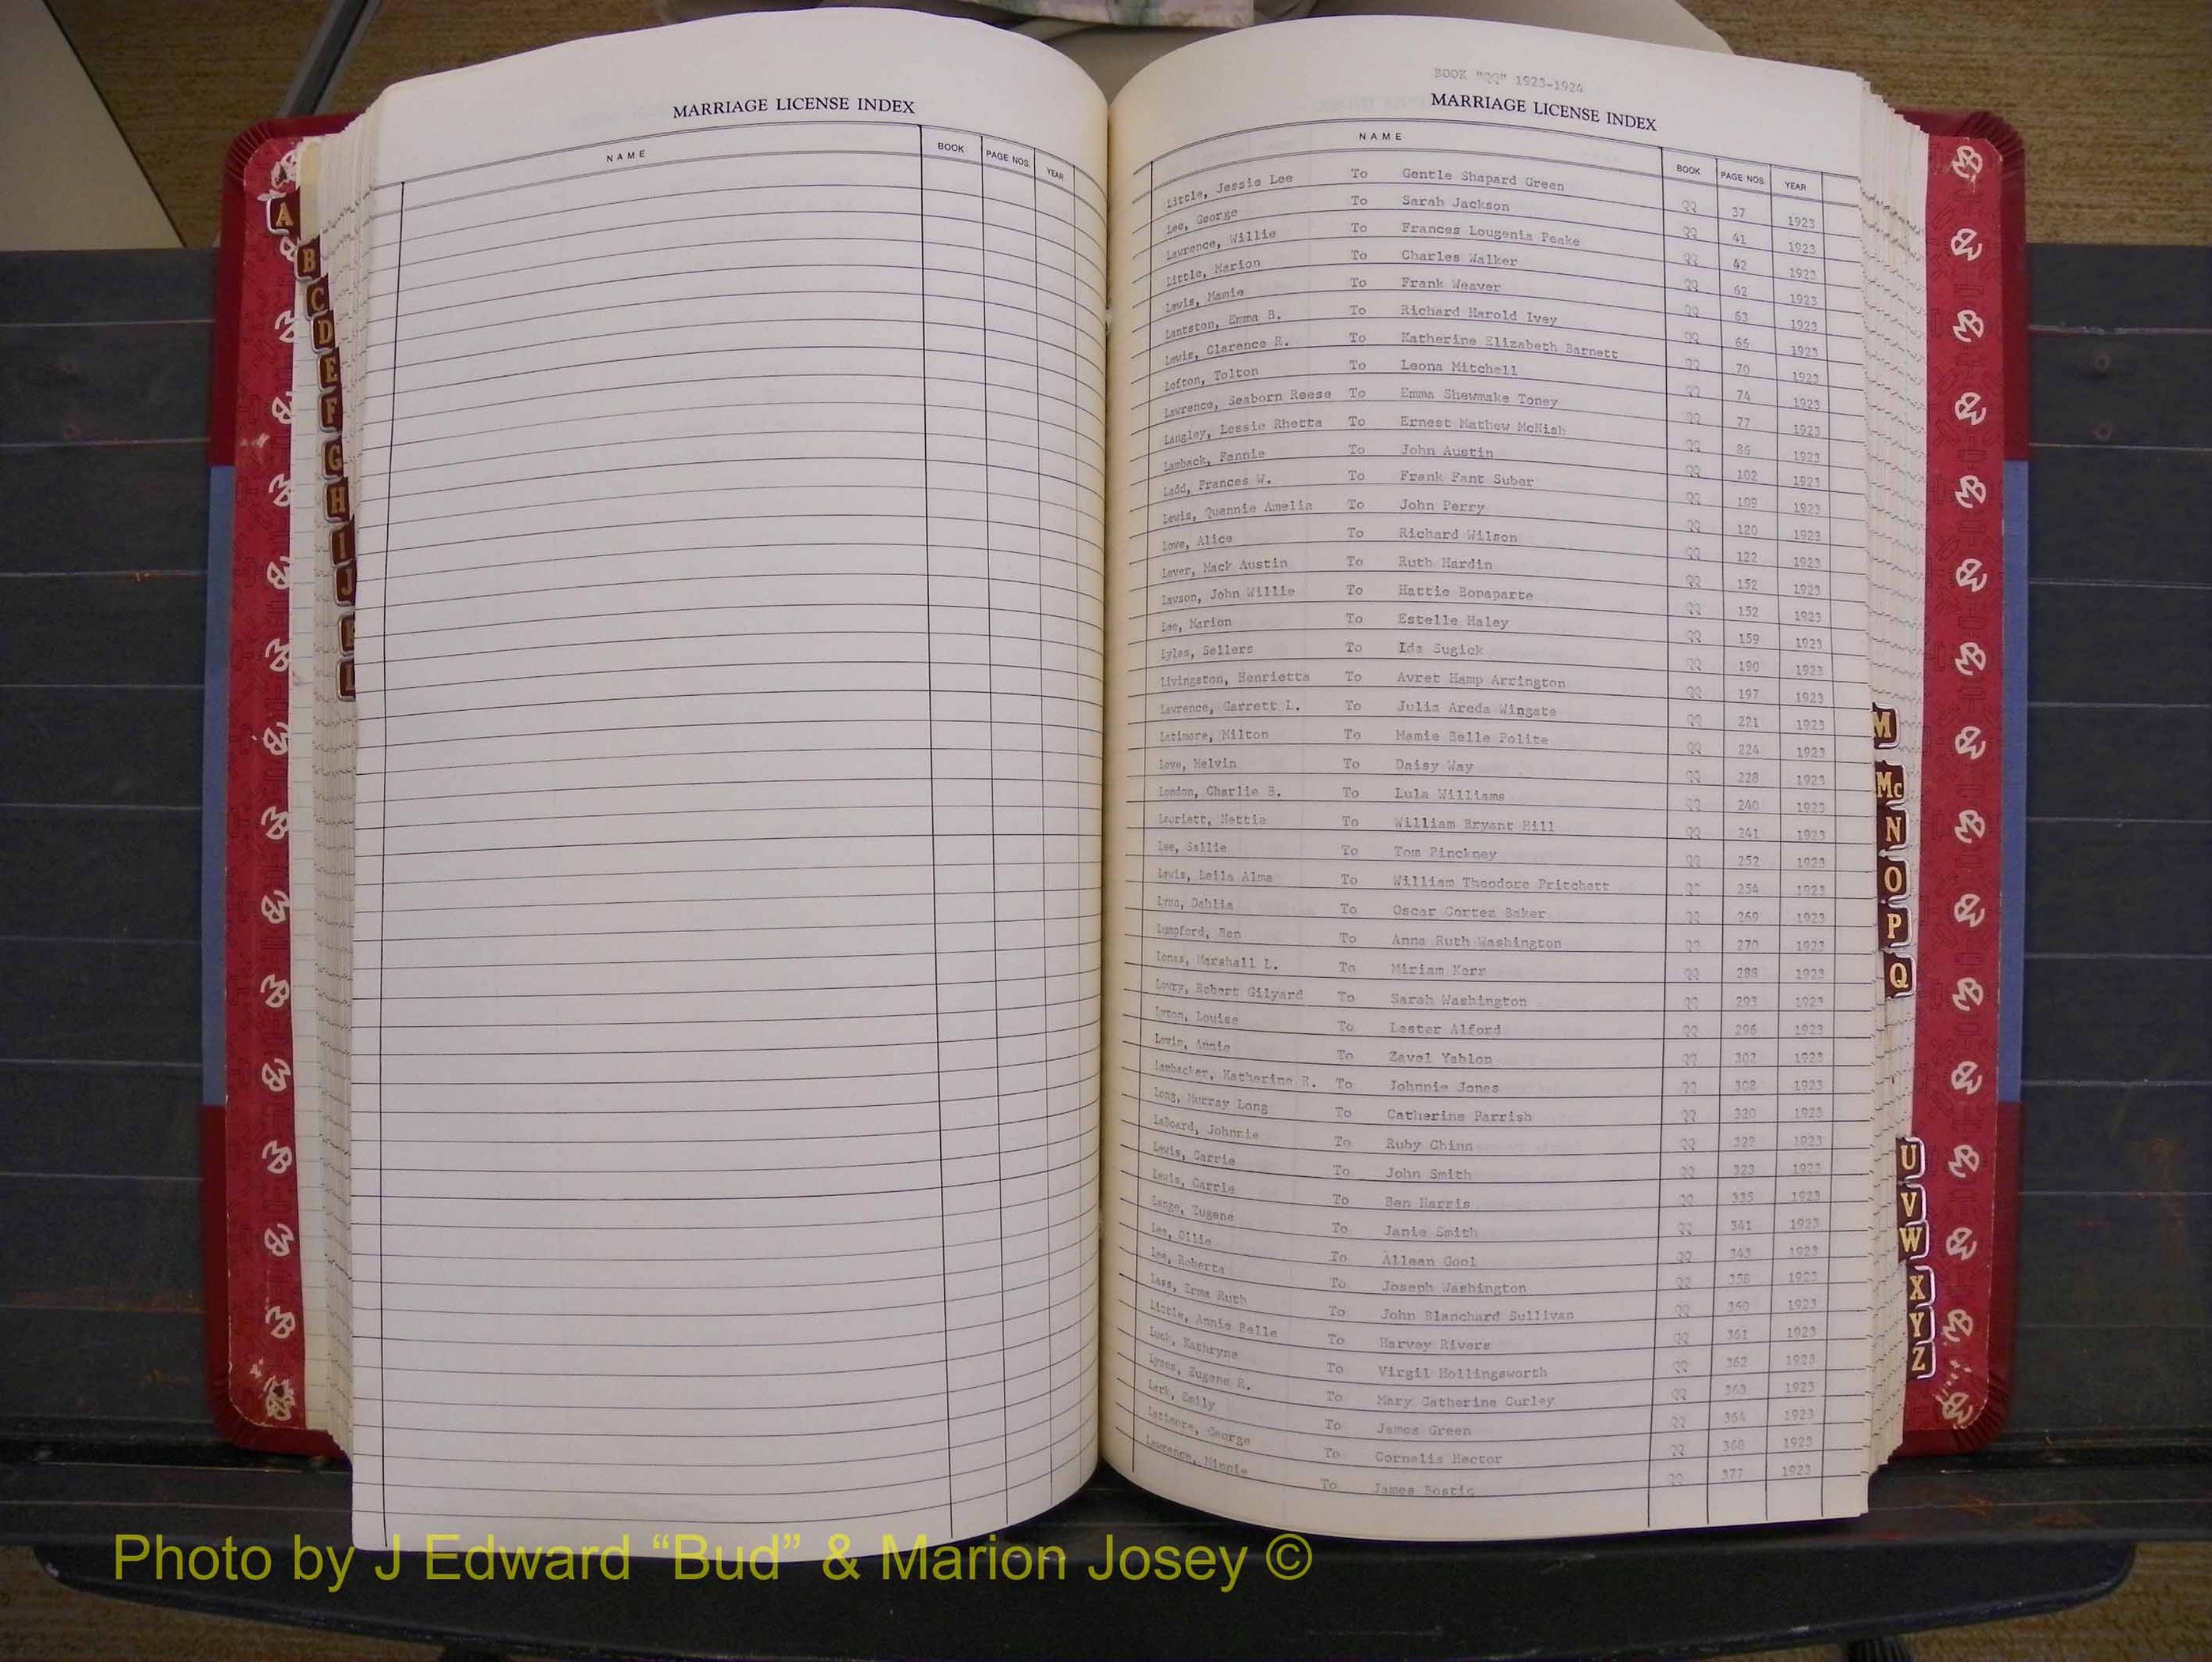 MARRIAGE LICENSE INDEX
NAME BOOK PAGE NOS. YEAR
BOOK "QQ" 1923-1924
MARRIAGE LICENSE INDEX
NAME BOOK PAGE NOS. YEAR
Little, Jessie Lee To Gentle Shapard Green QQ 37 1923
Lee, George To Sarah Jackson QQ 41 1923
Lawrence, Willie To Frances Lougenia Peake QQ 42 1923
Little, Marion To Charles Walker QQ 62 1923
Lewis, Mamie To Frank Weaver QQ 63 1923
Lantston, Emma B. To Richard Harold Ivey QQ 66 1923
Lewis, Clarence R. To Katherine Elizabeth Barnett QQ 70 1923
Lofton, Tolton To Leona Mitchell QQ 74 1923
Lawrence, Seaborn Reese To Emma Shewmake Toney QQ 77 1923
Langley, Lessie Rhetta To Ernest Mathew McNish QQ 86 1923
Lamback, Fannie To John Austin QQ 102 1923
Ladd, Frances W. To Frank Fant Suber QQ 109 1923
Lewis, Queenie Amelia To John Perry QQ 120 1923
Love, Alice To Richard Wilson QQ 122 1923
Lever, Mack Austin To Ruth Hardin QQ 152 1923
Lawson, John Willie To Hattie Bonaparte QQ 152 1923
Lee, Marion To Estelle Haley QQ 159 1923
Lyles, Sellers To Ida Sugick QQ 190 1923
Livingston, Henrietta To Avret Hamp Arrington QQ 197 1923
Lawrence, Garrett L. To Julia Areda Wingate QQ 221 1923
Latimore, Milton To Mamie Belle Polite QQ 224 1923
Love, Melvin To Daisy Way QQ 228 1923
London, Charlie B. To Lula Williams QQ 240 1923
Nettie To William Bryant Hill QQ 241 1923
Lee, Sallie To Tom Pinckney QQ 252 1923
Lewis, Leila Alma To William Theodore Pritchett QQ 254 1923
Lynn, Dahlia To Oscar Cortez Baker QQ 269 1923
Lumpford, Ben To Anna Ruth Washington QQ 270 1923
Lonas, Marshall L. To Miriam Kerr QQ 288 1923
Lowry, Robert Gilyard To Sarah Washington QQ 293 1923
Lyton, Louise To Lester Alford QQ 296 1923
Levin, Annie To Zavel Yablon QQ 302 1923
Lambacker, Katherine R. To Johnnie Jones QQ 308 1923
Long, Murray Long To Catherine Parrish QQ 320 1923
LaBoard, Johnnie To Ruby Chinn QQ 322 1923
Lewis, Carrie To John Smith QQ 323 1923
Lewis, Carrie To Ben Harris QQ 335 1923
Lange, Eugene To Janie Smith QQ 341 1923
Lee, Ollie To Allean Gool QQ 343 1923
Lee, Roberta To Joseph Washington QQ 358 1923
Lass, Erma Ruth To John Blanchard Sullivan QQ 360 1923
Little, Annie Belle To Harvey Rivers QQ 361 1923
Luck, Kathryne To Virgil Hollingsworth QQ 362 1923
Lyons, Eugene R. To Mary Catherine Curley QQ 363 1923
Lark, Emily To James Green QQ 364 1923
Latimore, George To Cornelia Hector QQ 368 1923
Lawrence, Minnie To James Bostic QQ 377 1923
A
B
C
D
E
F
G
H
I
J
L
M
Mc
N
O
P
Q
U
V
W
X
Y
Z
Photo by J Edward “Bud” & Marion Josey ©